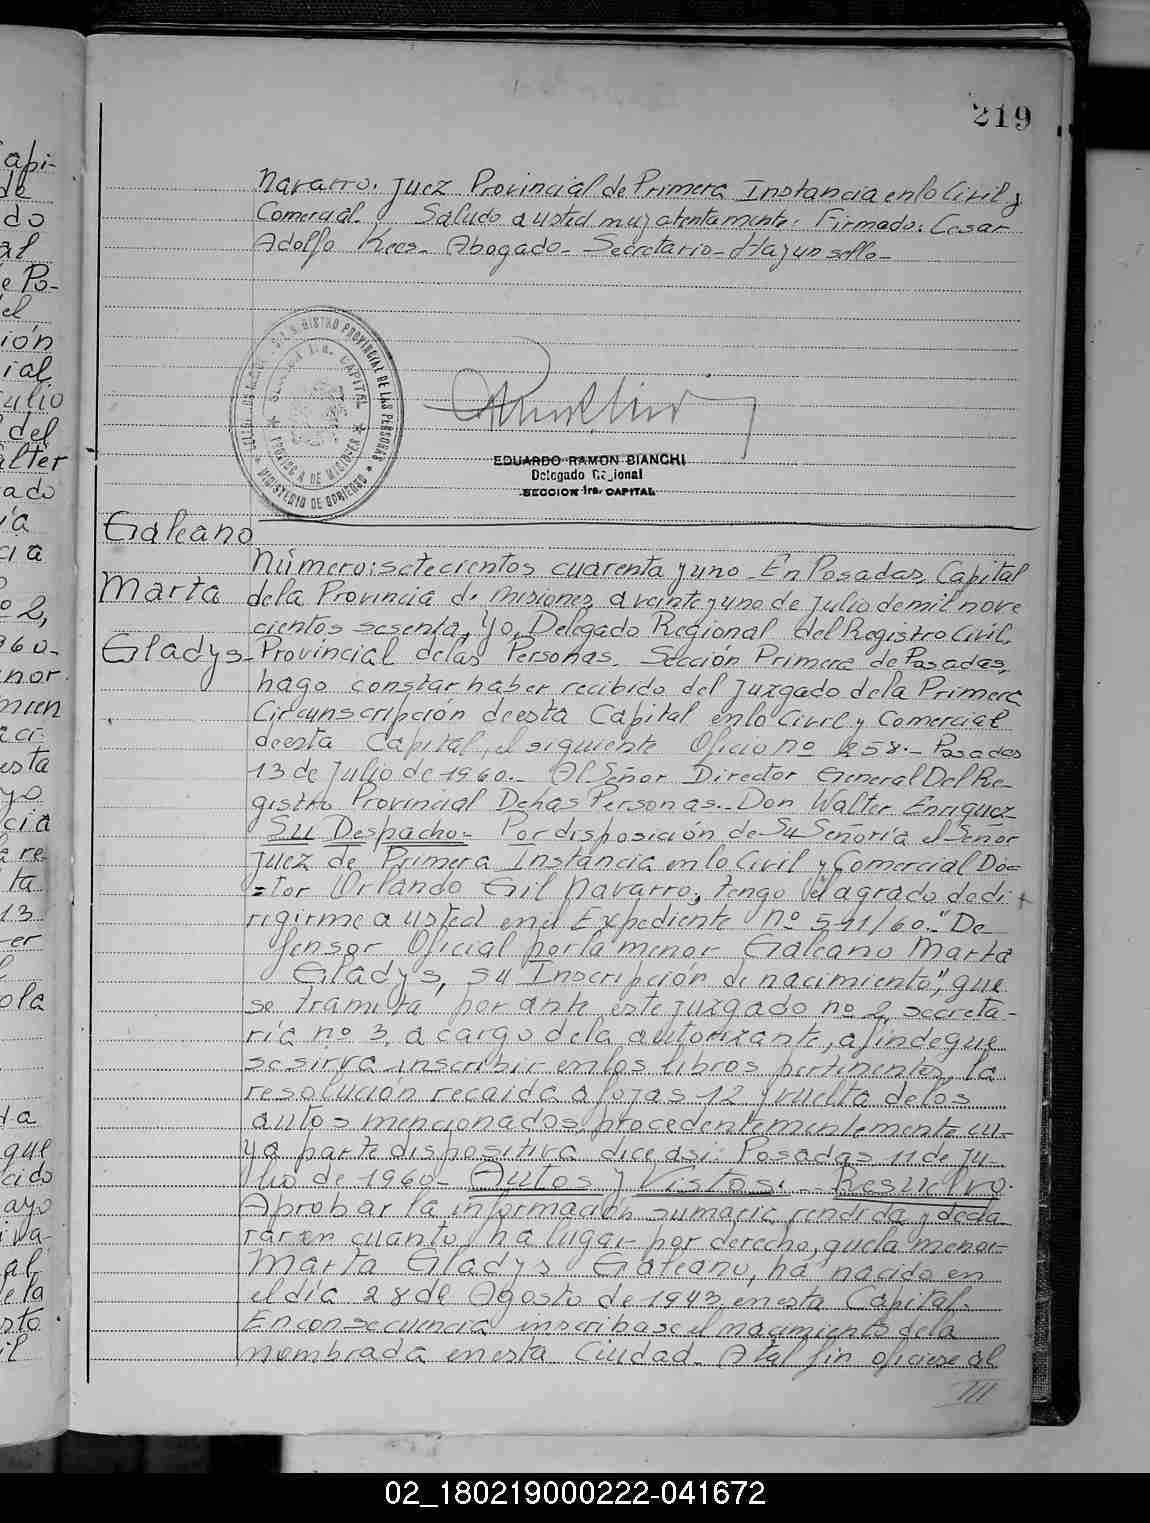 219
Navarro. Juez Provincial de Primera Instancia en lo Civil y
Comercial. Saludo a usted muy atentamente. Firmado: Cesar
Adolfo Kees - Abogado - Secretario - Hay un sello -
REGISTRO PROVINCIAL DE LAS PERSONAS
CAPITAL
PROVINCIA DE MISIONES
MINISTERIO DE GOBIERNO
EDUARDO RAMON BIANCHI
Delegado Regional
SECCION 1ra. CAPITAL
Galeano
Marta
Gladys -
Número: setecientos cuarenta y uno - En Posadas, Capital
de la Provincia de Misiones, a veinte y uno de Julio de mil nove
cientos sesenta, Yo, Delegado Regional del Registro Civil,
Provincial de las Personas. Sección Primera de Posadas,
hago constar haber recibido del Juzgado de la Primera
Circunscripción de esta Capital en lo Civil y Comercial
de esta Capital, el siguiente Oficio nº 258.- Posadas
13 de Julio de 1960.- Al Señor Director General Del Re-
gistro Provincial De las Personas.- Don Walter Enriquez
Su Despacho - Por disposición de Su Señoría el Señor
Juez de Primera Instancia en lo Civil y Comercial Doc=
=tor Orlando Gil Navarro, tengo el agrado de di
rigirme a usted en el Expediente nº 541/60.- "De
fensor Oficial por la menor Galeano Marta
Gladys, su Inscripción de nacimiento", que
se tramita por ante este juzgado nº 2, secreta-
ría nº 3, a cargo de la autorizante, a fin de que
se sirva inscribir en los libros pertinentes, la
resolución recaida a fojas 12 y vuelta de los
autos mencionados procedentementemente cu-
ya parte dispositiva dice asi: Posadas, 11 de Ju-
lio de 1960 - Autos y Vistos: - Resuelvo:
Aprobar la información sumaria rendida y decla
rar en cuanto ha lugar por derecho, que la menor
Marta Gladys Galeano, ha nacido en
el día 28 de Agosto de 1943, en esta Capital.
En consecuencia inscribase el nacimiento de la
nombrada en esta Ciudad. A tal fin oficiese al
///
02_180219000222-041672